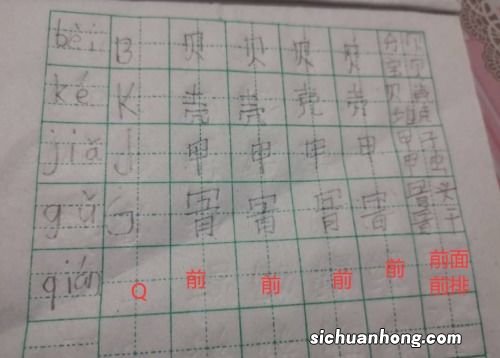 bèi B 贝 贝 贝 贝
ké K 壳 壳 壳 壳
jiǎ J 甲 甲 甲 甲 甲子 甲虫
gǔ G 骨 骨 骨 骨 骨头
qián Q 前 前 前 前 前面 前排
sichuanhong.com